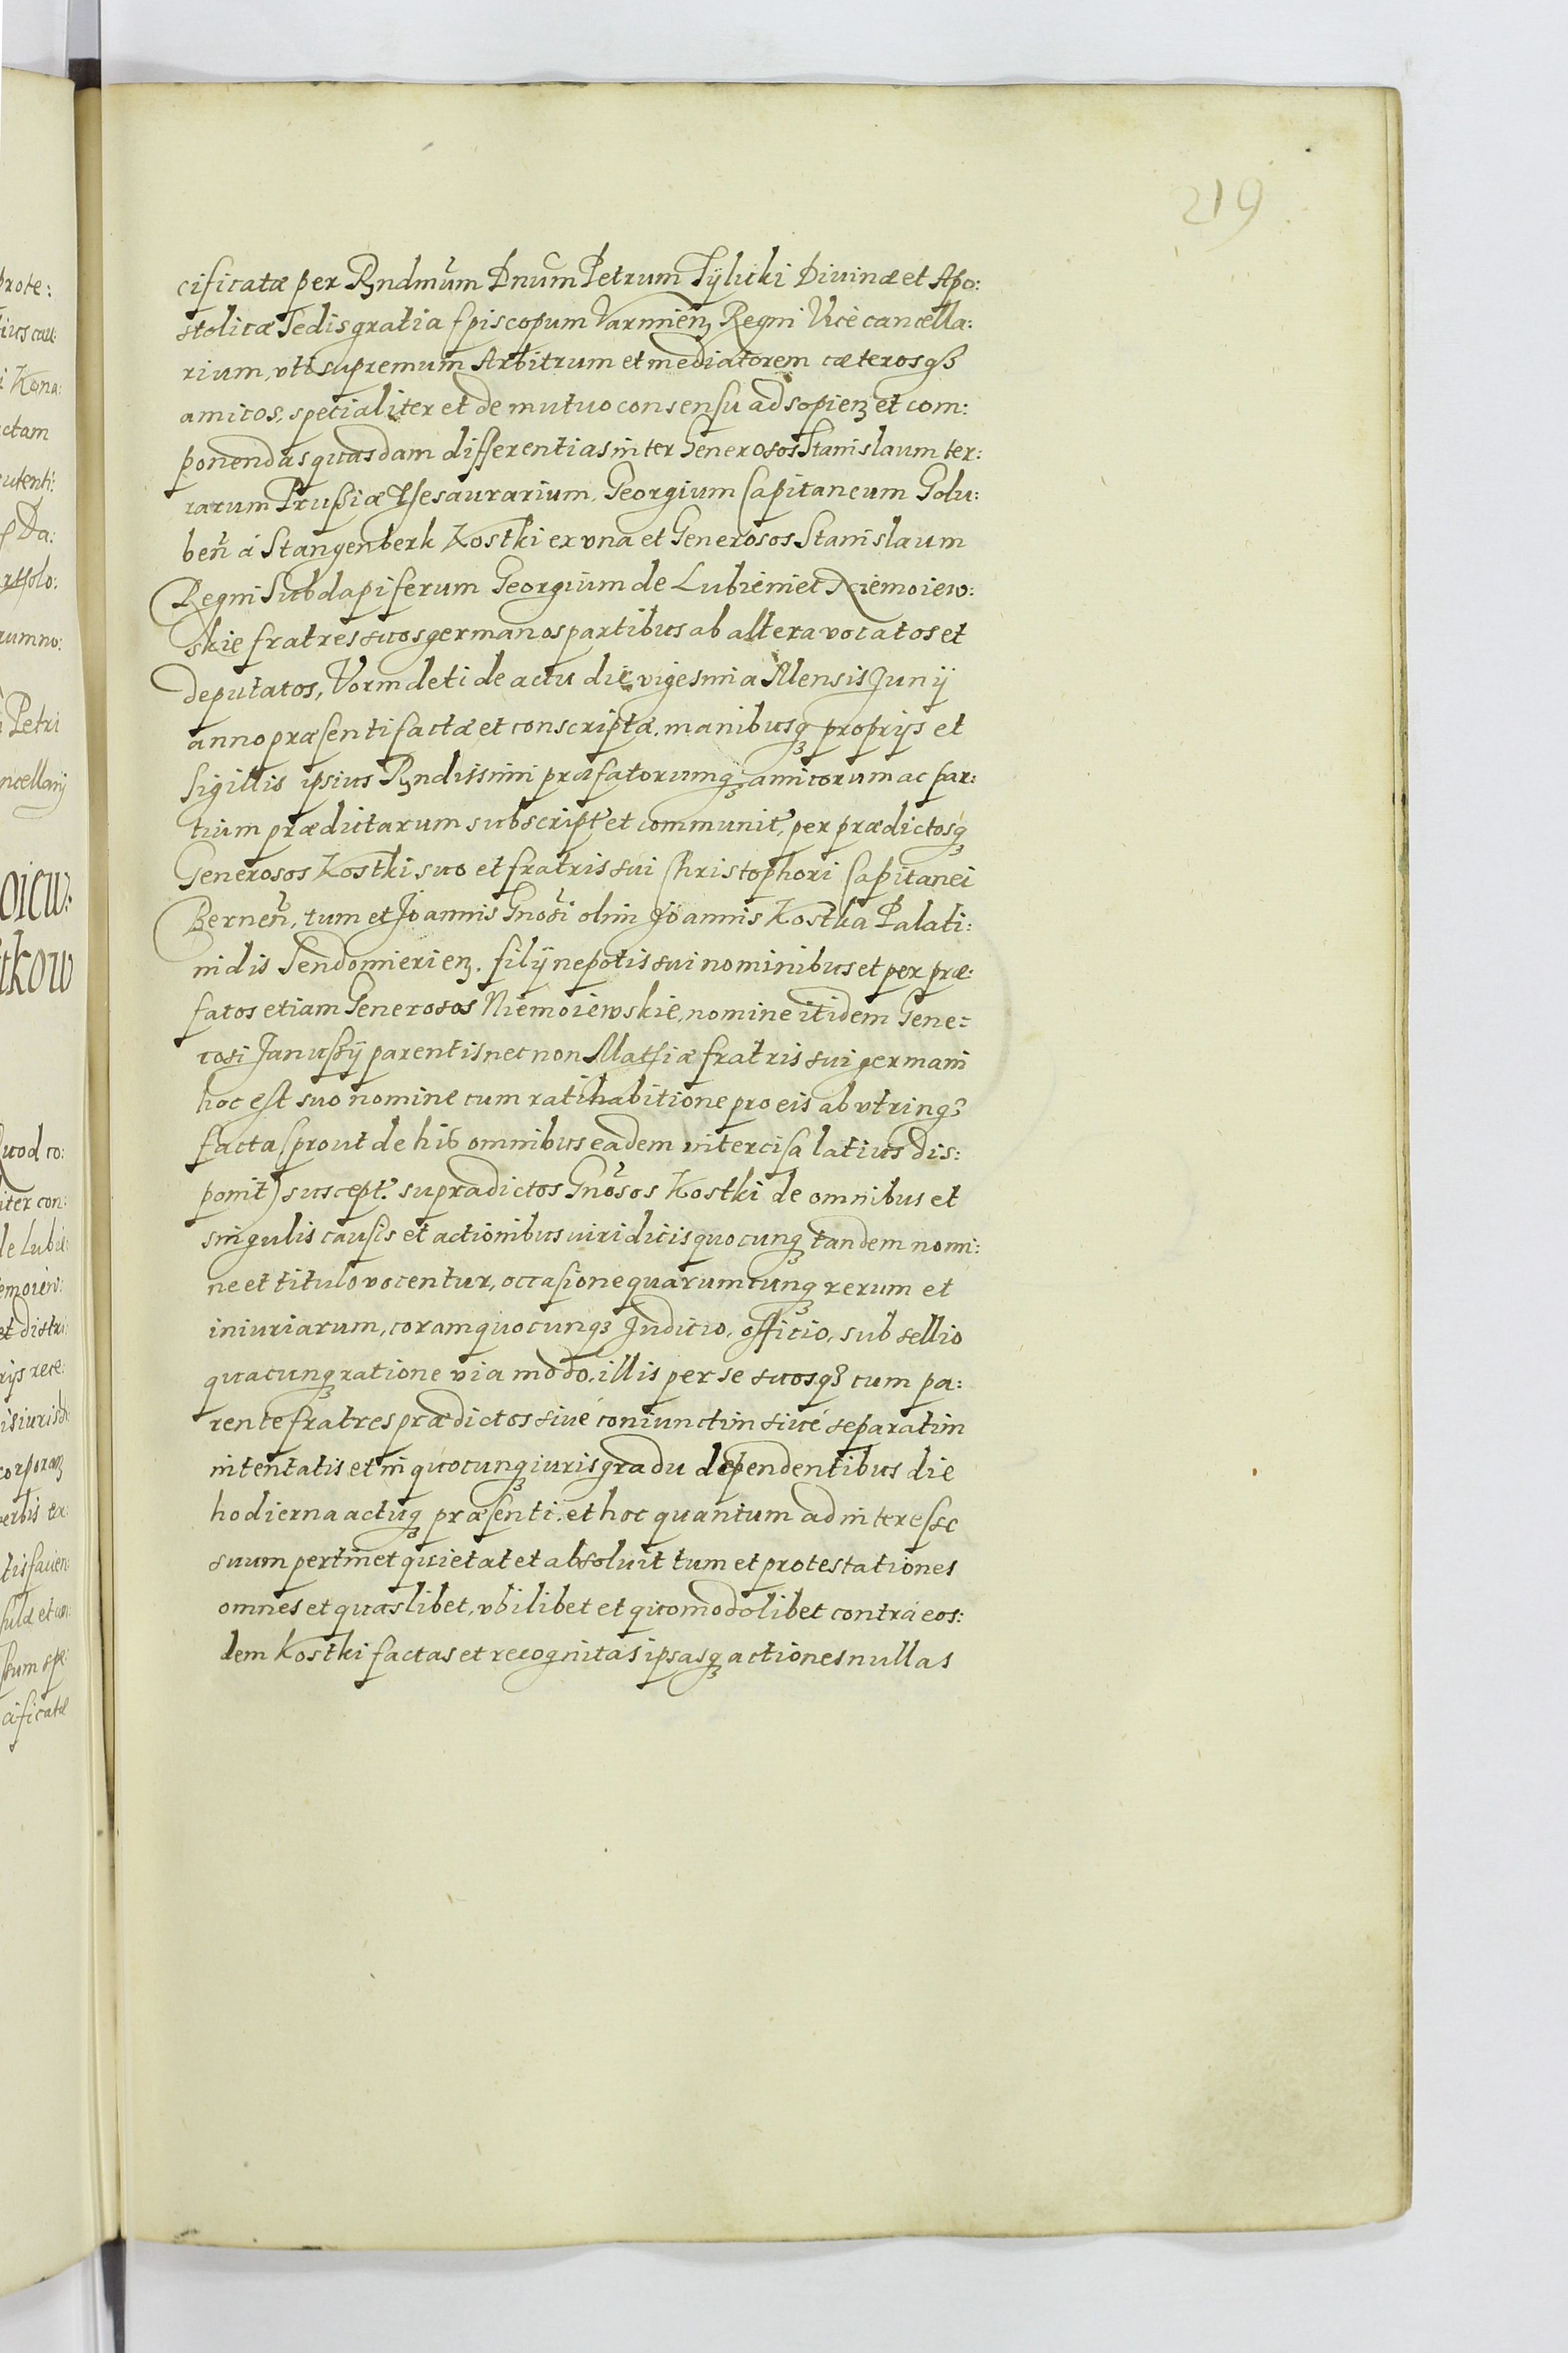 219
cificatæ per Rndmum Dnum Petrum Tÿlicki Diuinæ et Apo:
stolicæ Sedis gratia Episcopum Varmien Regni Vicècancella:
rium, vti supremum Arbitrum et mediatorem cæterosqȝ
amicos, specialiter et de mutuo consensu ad sopien et com:
ponendas quasdam differentias inter Generosos Stanislaum ter:
rarum Prussiæ Thesaurarium, Georgium Capitaneum Golu:
ben á Stangenberk Kostki ex vna et Generosos Stanislaum
Regni Subdapiferum Georgium de Lubieniec Niemoiew:
skie fratres suos germanos partibus ab altera vocatos et
deputatos, Vormdeti de actu die vigesima Mensis Junij
anno præsenti factæ et conscriptæ, manibusqȝ proprijs et
Sigillis ipsius Rndissimi præfatorumqȝ amicorum ac par:
tium prædictarum subscript et communit, per prædictosqȝ
Generosos Kostki suo et fratris sui Christophori Capitanei
Bernen, tum et Joannis Gnosi olim Joannis Kostka Palati:
nidis Sendomierien. filij nepotis sui nominibus et per præ:
fatos etiam Generosos Niemoiewskie, nomine itidem Gene:
rosi Janussÿ parentis nec non Mathiæ fratris sui germani
hoc est suo nomine cum ratihabitione pro eis ab vtrinqȝ
facta (prout de his omnibus eadem intercisa latius dis:
ponit) suscept. supradictos Gnosos Kostki de omnibus et
singulis causis et actionibus iuridicis quocunqȝ tandem nomi:
ne et titulo vocentur, occasione quarumcunqȝ rerum et
iniuriarum, coram quocunqȝ Judicio, officio, subsellio
quacunqȝ ratione via modo, illis per se suosqȝ cum pa:
rente fratres prædictos siué coniunctim siué separatim
intentatis et in quocunqȝ iuris gradu dependentibus die
hodierna actuqȝ præsenti, et hoc quantum ad interesse
suum pertinet quietat et absoluit tum et protestationes
omnes et quaslibet, vbilibet et quomodolibet contra eos:
dem Kostki factas et recognitas ipsasqȝ actiones nullas